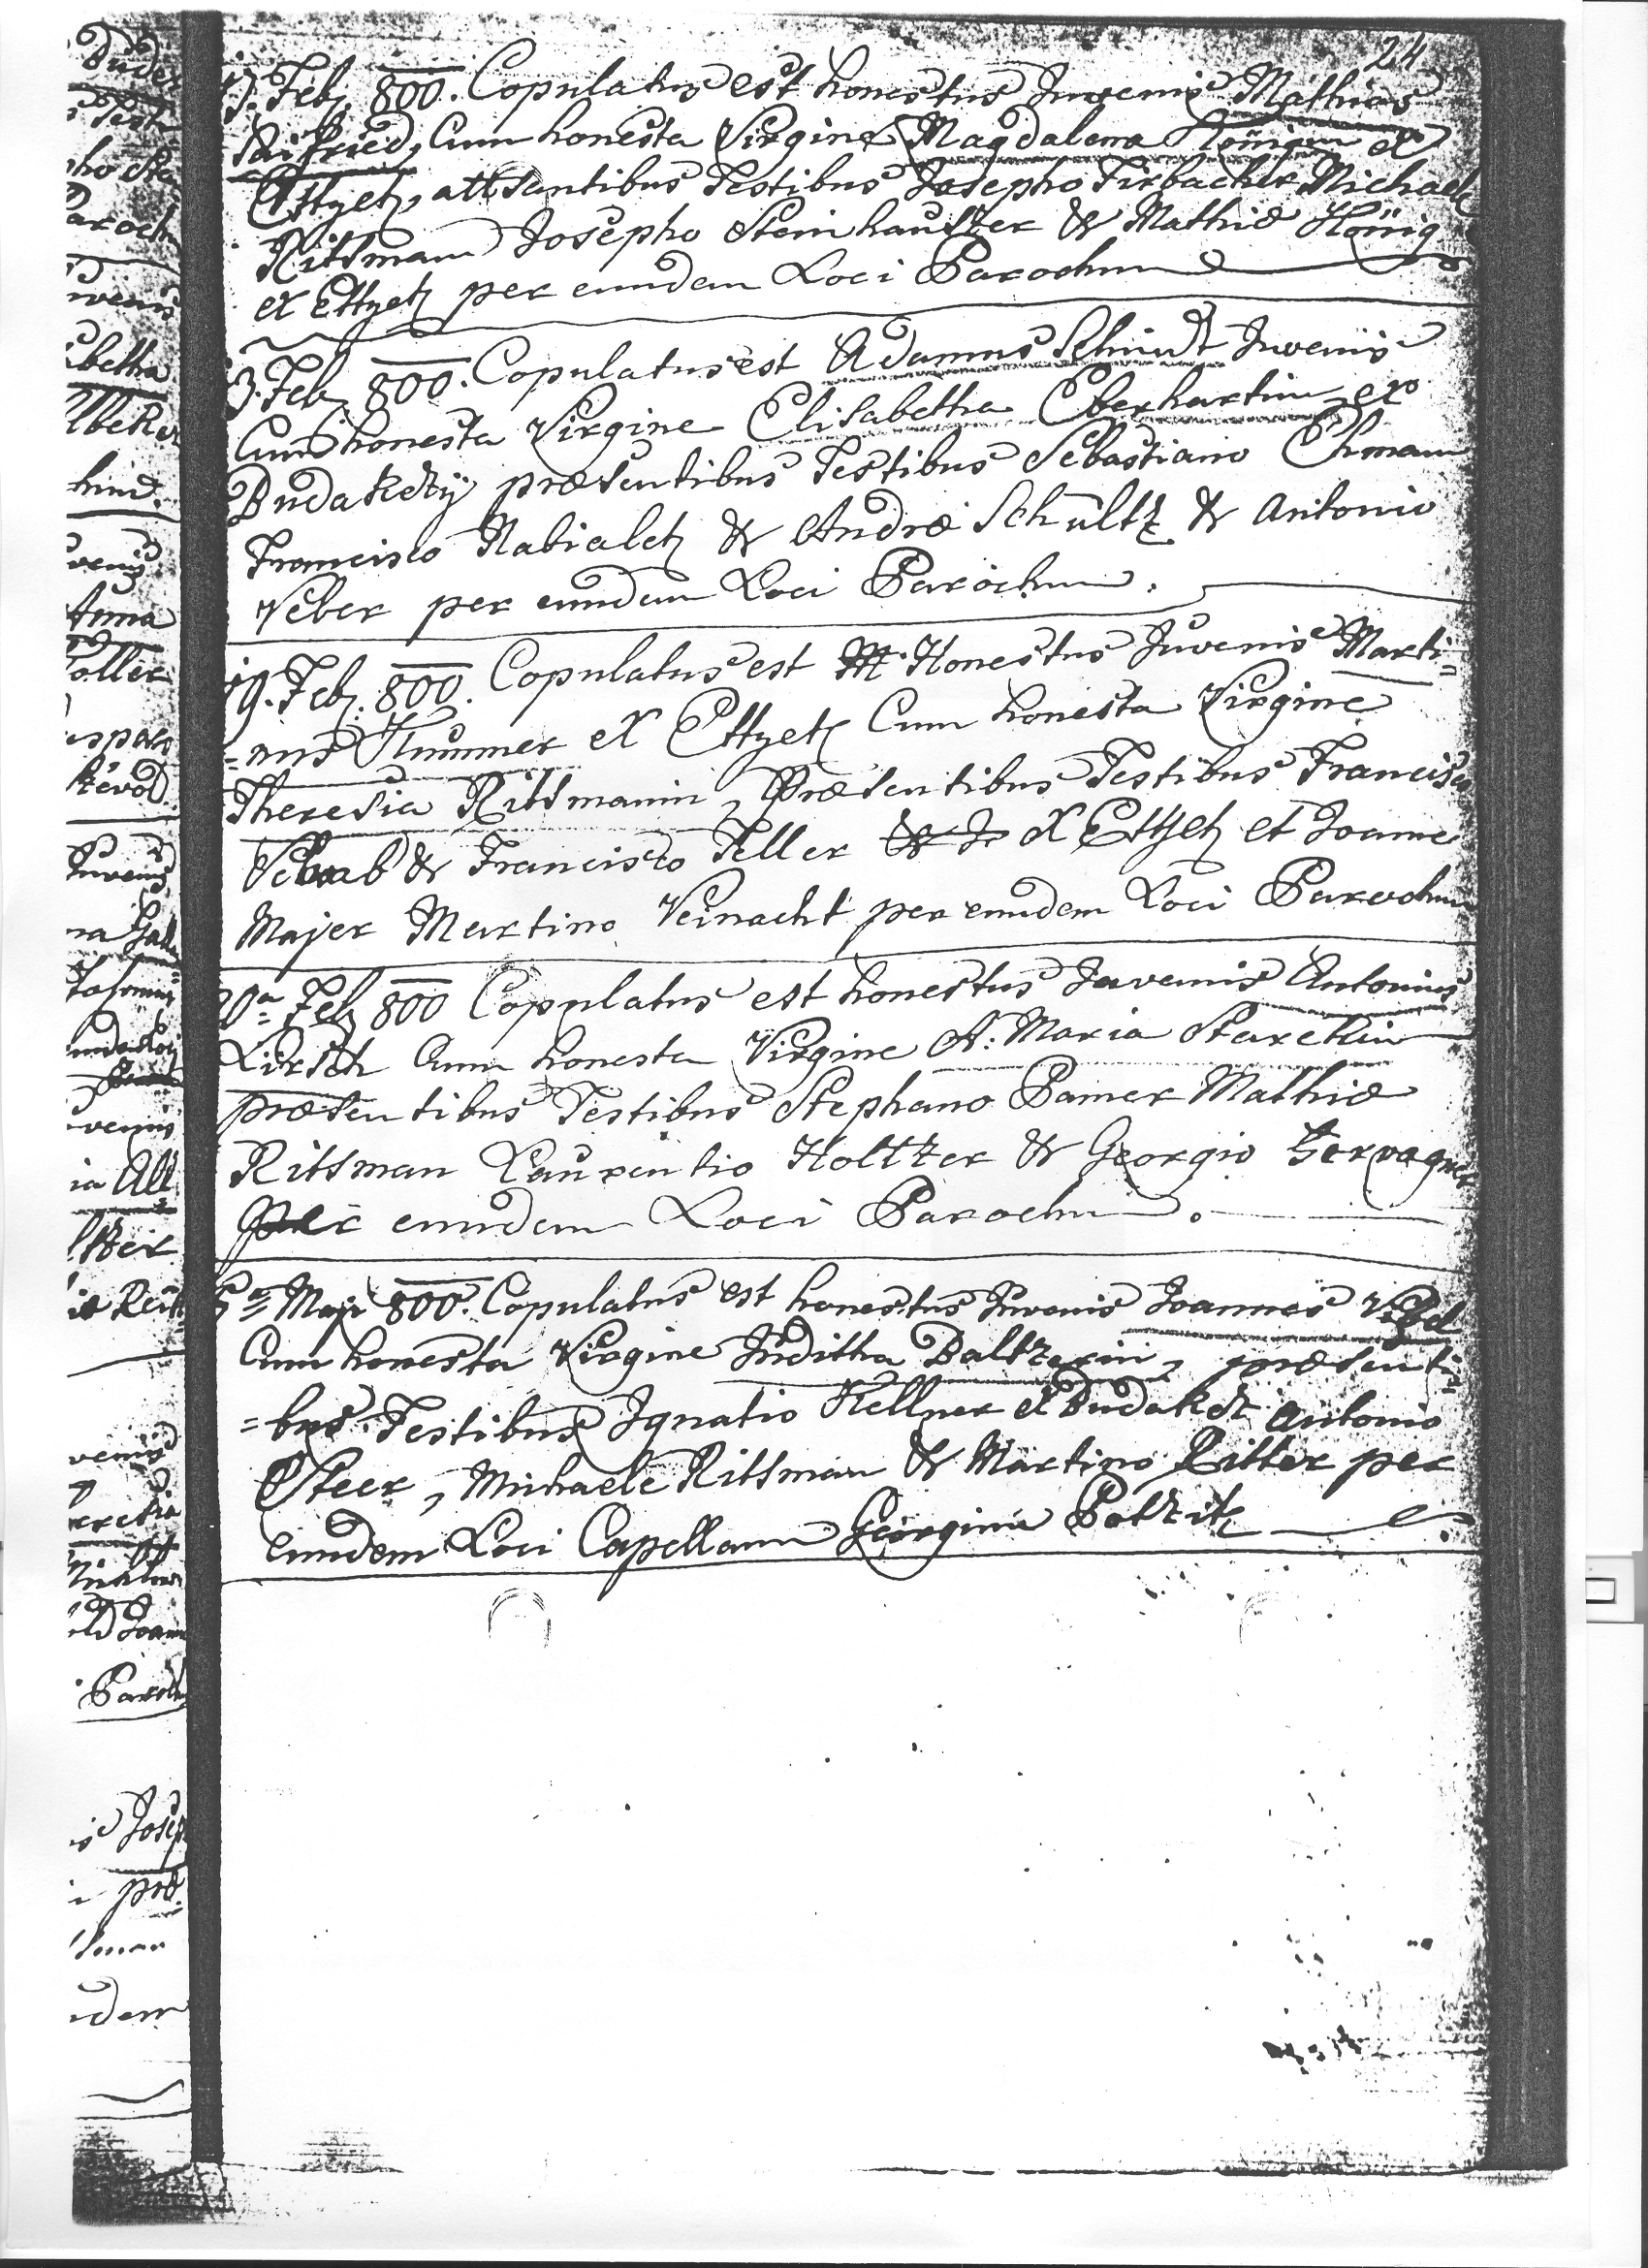 24
Feb. 800. Copulatus est honestus Juvenis Mathias
Saifried, Cum honesta Virgine Magdalena Königin ex
Ettyek, attsantibus Testibus Josepho Firbacher Michaele
Rittsmann Josepho Steinhauszer & Mathiæ König
ex Ettyek per eundem Loci Parochum
3. Feb. 800. Copulatus est Adamus Schmidt Juvenis
Cum honesta Virgine Elisabetha Eberhartin ex
Budakeszy præsentibus Testibus Sebastiano Ehmann
Francisco Nabialek & Andræ Schultz & Antonio
Veber per eundem Loci Parochum.
19. Feb. 800. Copulatus est Honestus Juvenis Marti=
=nus Kummer ex Ettyek Cum honesta Virgine
Theresia Rittsmanin, Præsentibus Testibus Francisco
Schvab & Francisco Feller ex Ettyek et Joanne
Majer Martino Veinacht per eundem Loci Parochum
20a Feb 800 Copulatus est honestus Juvenis Antonius
Lirsch Cum honesta Virgine A: Maria Starckin
præsentibus Testibus Stephano Pamer Mathiæ
Rittsman Laurentio Holtzer & Georgio
per eundem Loci Parochum.
5a Maji 800. Copulatus est honestus Juvenis Joannes
Cum honesta Virgine Juditha Baltzerin, præsenti=
=bus Testibus Ignatio Kellner ex Budakesz Antonio
Steer, Michaele Rittsman & Martino Ritter per
Eundem Loci Capellanum Georgium Patzitz